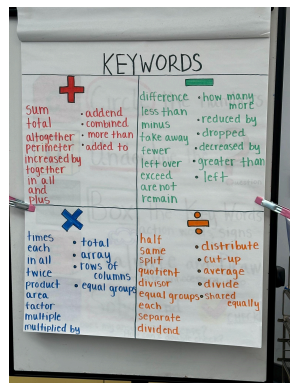 KEYWORDS
+
sum
total
altogether
perimeter
increased by
together
in all
and
plus
• addend
• combined
• more than
• added to
−
difference
less than
minus
take away
fewer
left over
exceed
are not
remain
• how many
more
• reduced by
• dropped
• decreased by
• greater than
• left
×
times
each
in all
twice
product
area
factor
multiple
multiplied by
• total
• array
• rows of
columns
• equal groups
÷
half
same
split
quotient
divisor
equal groups
each
separate
dividend
• distribute
• cut-up
• average
• divide
• shared
equally